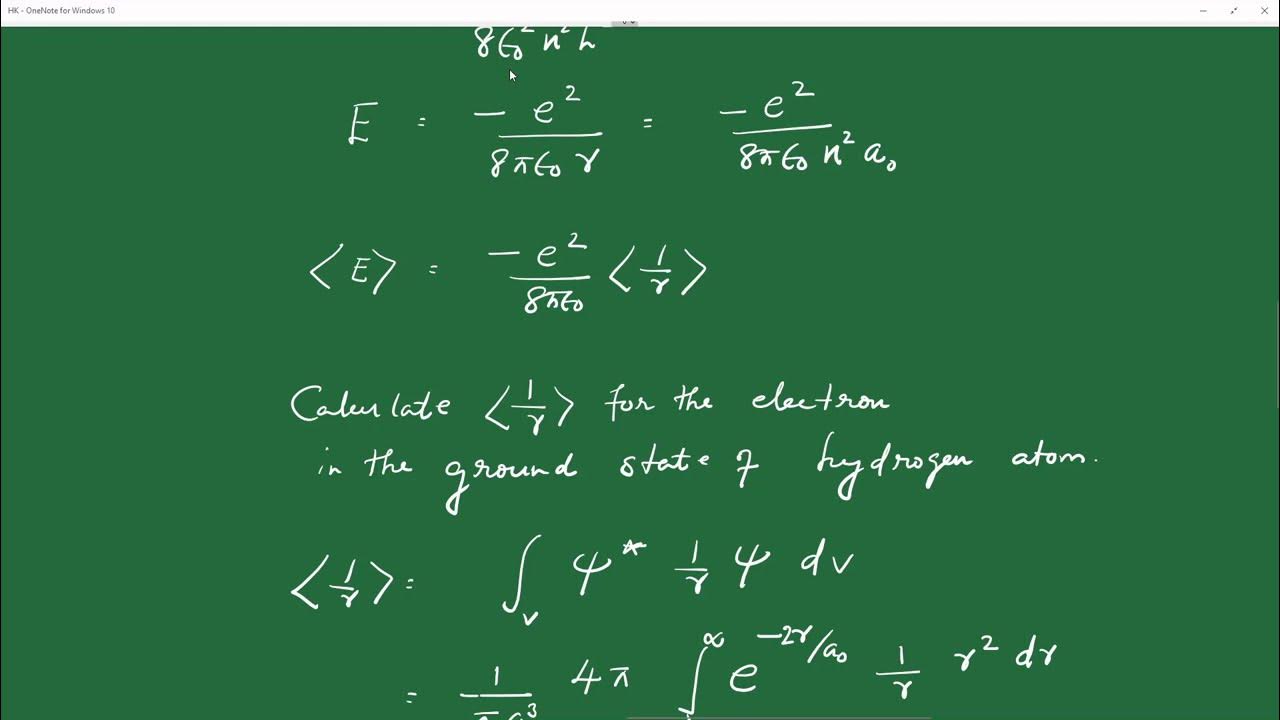 HK - OneNote for Windows 10
8ϵ₀² n² h
E = -e² / 8πϵ₀ r = -e² / 8πϵ₀ n² a₀
⟨E⟩ = -e² / 8πϵ₀ ⟨1/r⟩
Calculate ⟨1/r⟩ for the electron
in the ground state of hydrogen atom.
⟨1/r⟩ = ∫_v ψ* 1/r ψ dv
= 1/πa³ 4π ∫^∞ e^(-2r/a₀) 1/r r² dr